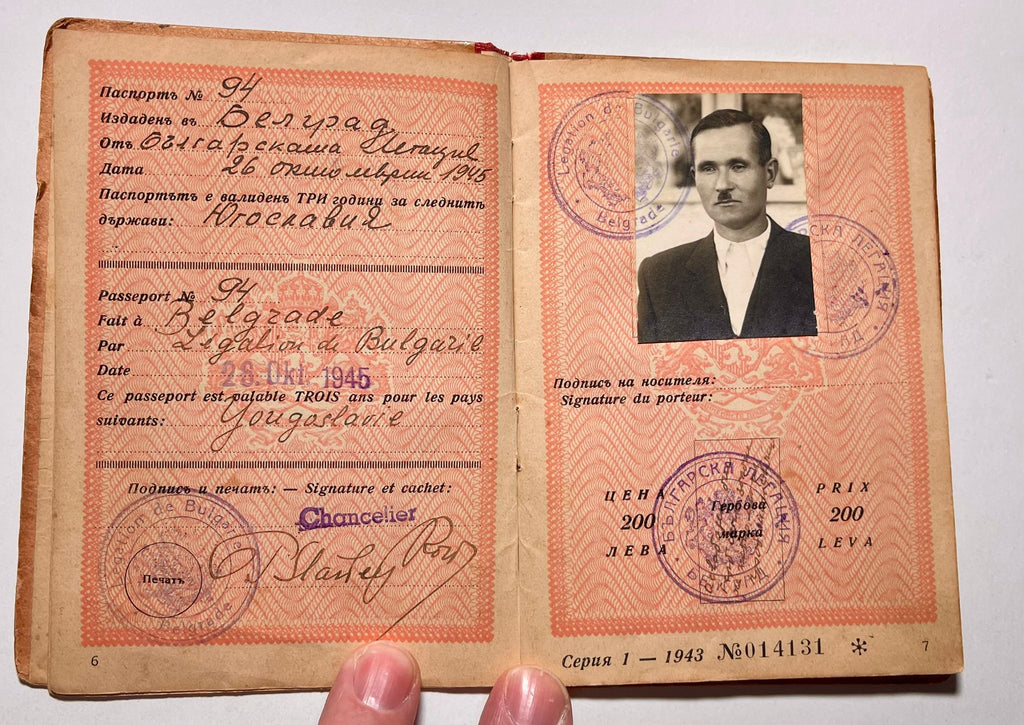 Паспортъ № 94
Издаденъ въ Белград
Отъ Българската Легация
Дата 26 октомврий 1945
Паспортътъ е валиденъ ТРИ години за следнитѣ
държави: Югославия
Passeport № 94
Fait à Belgrade
Par Legation de Bulgarie
Date 28 Okt 1945
Ce passeport est palable TROIS ans pour les pays
suivants: Yougoslavie
Подпись и печатъ: — Signature et cachet:
Chancelier
Legation de Bulgarie
Печатъ
Belgrade
6
Legation de Bulgarie
Belgrade
ЛЕГАЦИЯ
Подпись на носителя:
Signature du porteur:
БЪЛГАРСКА ЛЕГАЦИЯ
ЦЕНА
200
ЛЕВА
Гербова
марка
PRIX
200
LEVA
Серия 1 — 1943 №014131 *
7